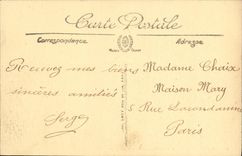 Carte Postale
Correspondance
Adresse
Recevez mes biens
sincères amitiés
Serge
Madame Chaix
Maison Mary
5 Rue
Paris